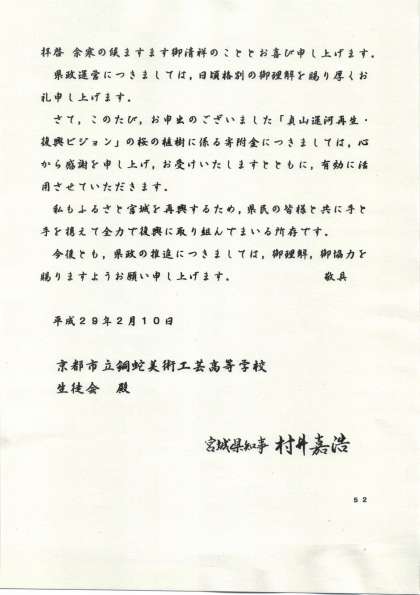 拝啓 余寒の候ますます御清祥のこととお喜び申し上げます。
県政運営につきましては,日頃格別の御理解を賜り厚くお
礼申し上げます。
さて,このたび,お申出のございました「貞山運河再生・
復興ビジョン」の桜の植樹に係る寄附金につきましては,心
から感謝を申し上げ,お受けいたしますとともに,有効に活
用させていただきます。
私もふるさと宮城を再興するため,県民の皆様と共に手と
手を携えて全力で復興に取り組んでまいる所存です。
今後とも,県政の推進につきましては,御理解,御協力を
賜りますようお願い申し上げます。 敬具
平成29年2月10日
京都市立銅蛇美術工芸高等学校
生徒会 殿
宮城県知事 村井嘉浩
52